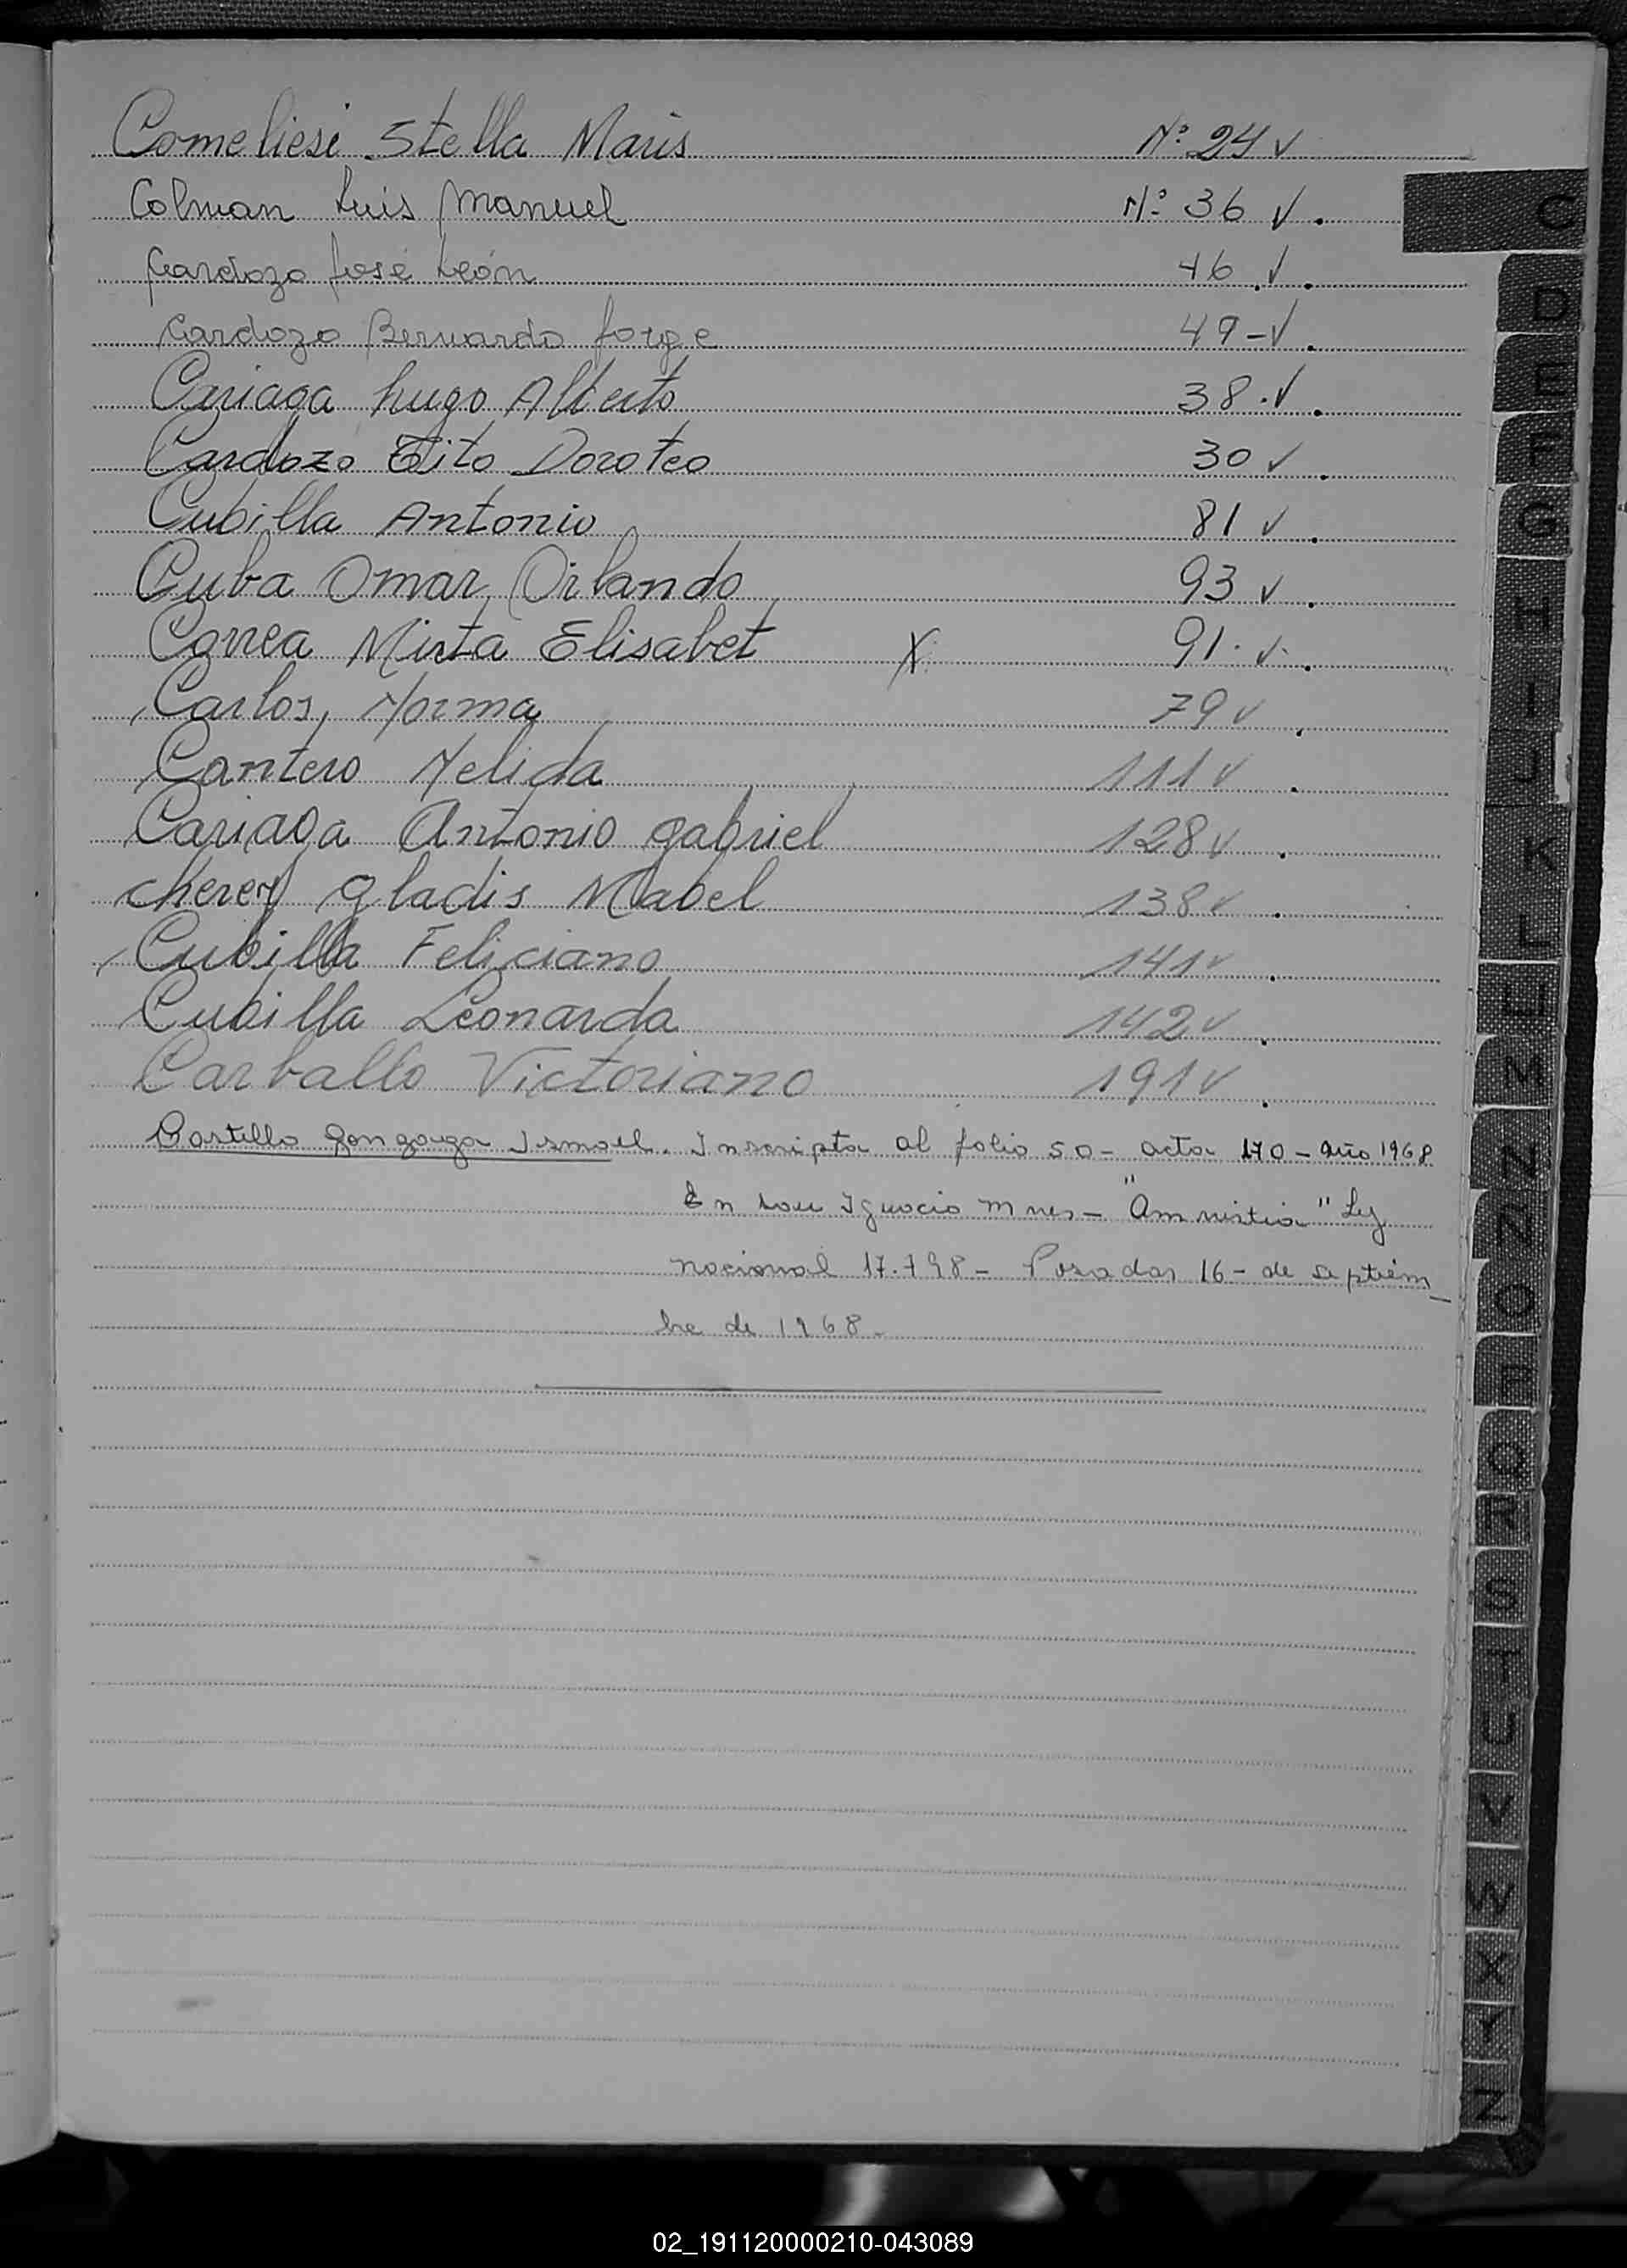 Comeliesi Stella Maris Nº 24 √
Colman Luis Manuel Nº 36 √.
Cardozo José León 46.√.
Cardozo Bernardo Jorge 49-√.
Cariaga hugo Alberto 38.√.
Cardozo Tito Doroteo 30 √.
Cubilla Antonio 81 √.
Cuba Omar Orlando 93 √.
Correa Mirta Elisabet X 91.√.
Carlos, Norma 79 √.
Cantero Nelida 111 √.
Cariaga Antonio gabriel 128 √.
Cherey gladis Mabel 138 √.
Cubilla Feliciano 141 √.
Cubilla Leonarda 142 √.
Carballo Victoriano 191 √.
Castillo Gonzaga Ismael. Inscripta al folio 50- acta 170 - año 1968
En San Ignacio Mnes- "Amnistia" Ley
nacional 17.798- Posadas 16- de septiem_
bre de 1968.
C
D
E
F
G
H
I
J
K
L
LL
M
N
Ñ
O
P
Q
R
S
T
U
V
W
X
Y
Z
02_191120000210-043089